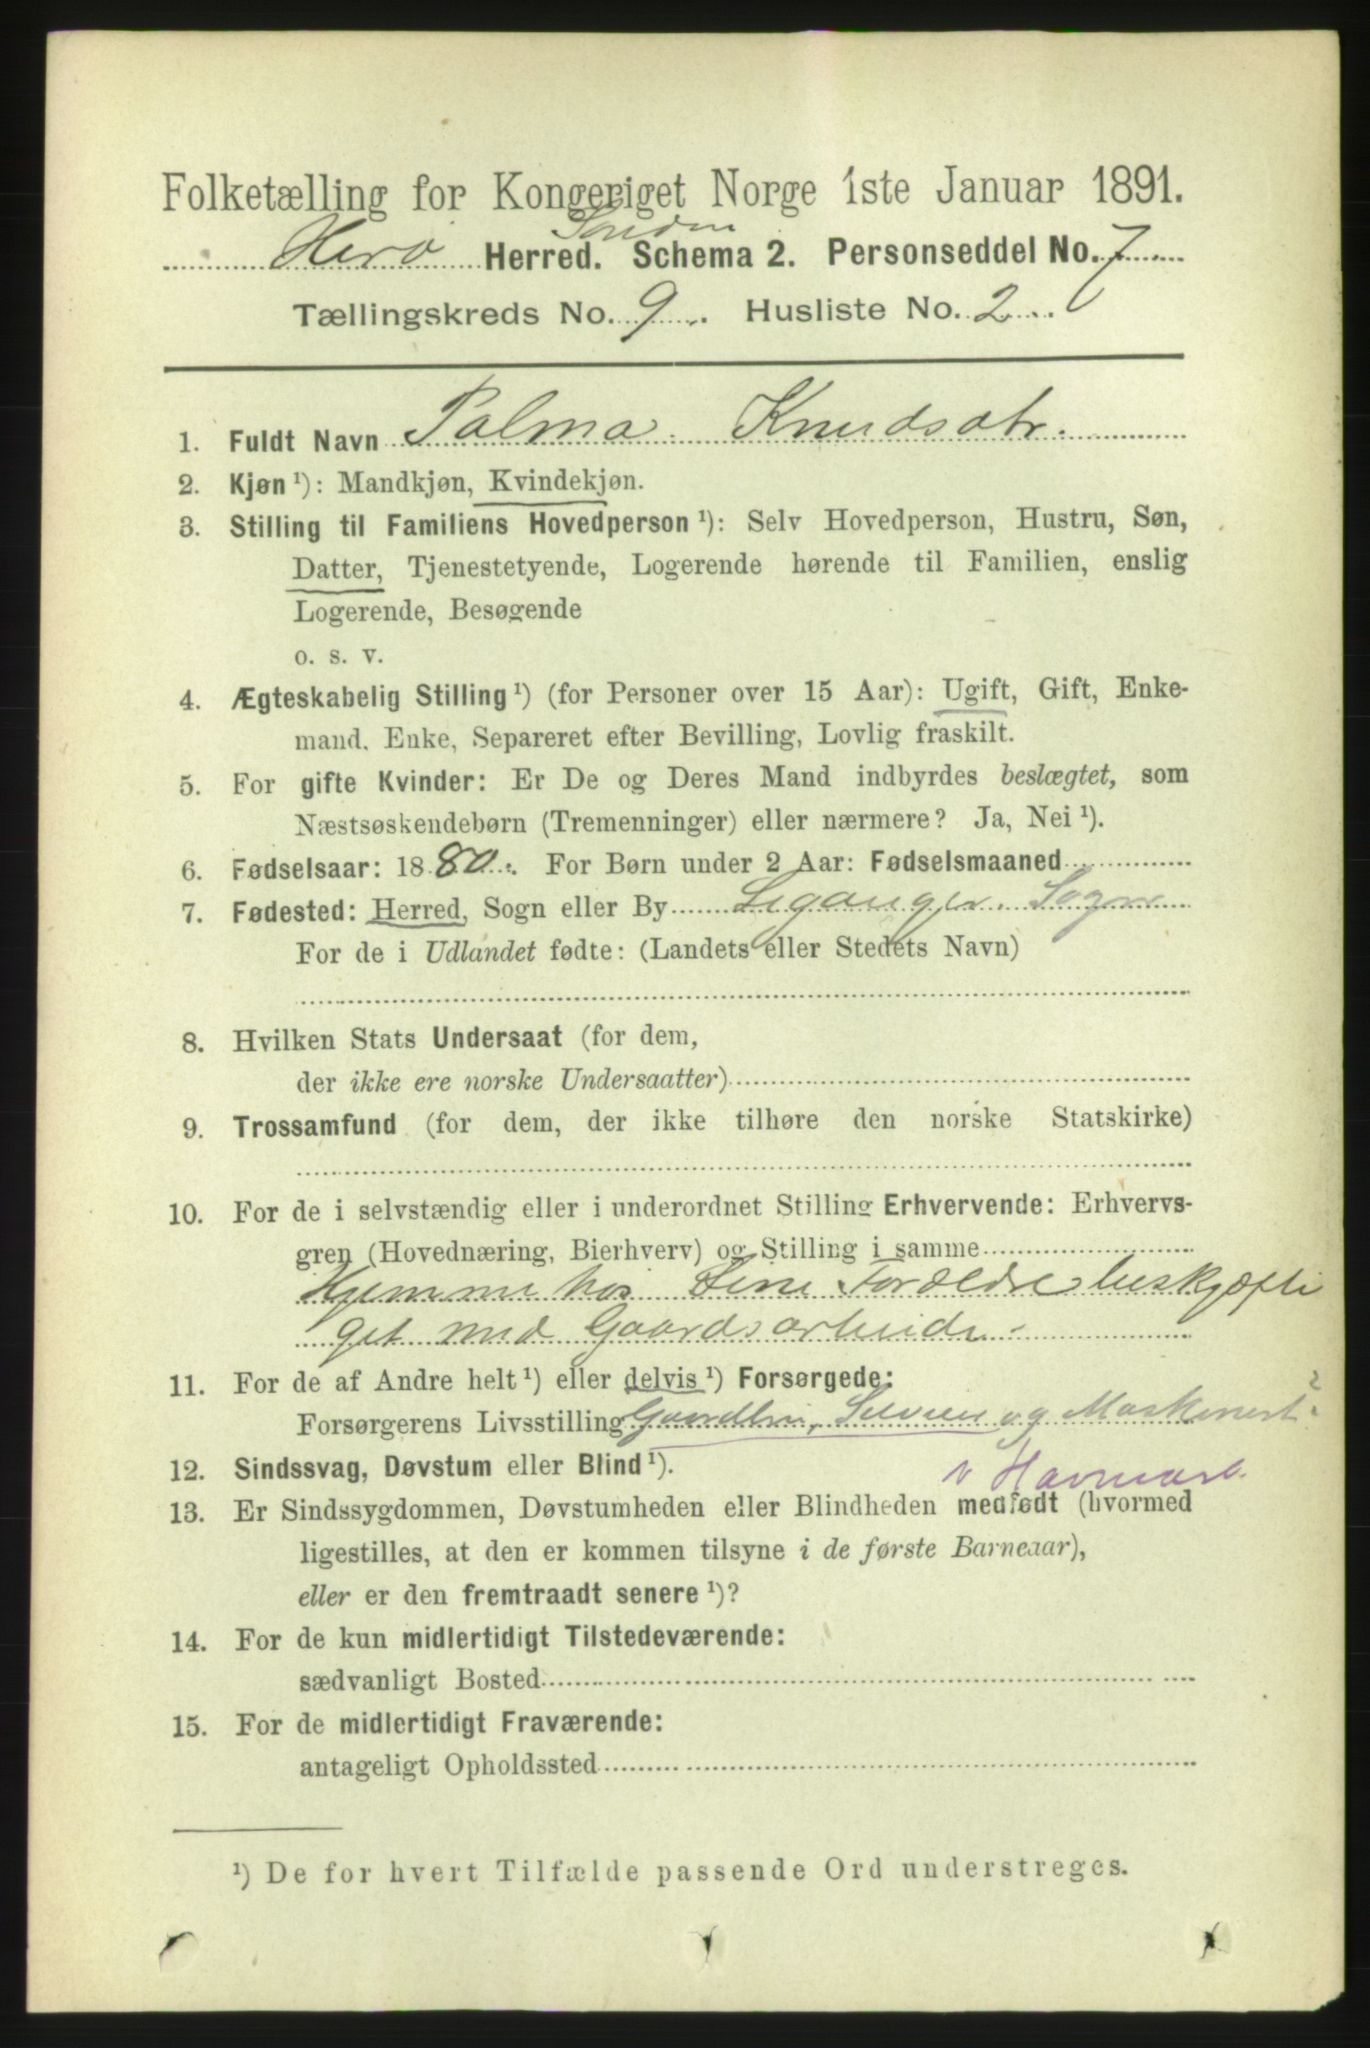 Folketælling for Kongeriget Norge 1ste Januar 1891.
Herø Herred. Schema 2. Personseddel No. 7
Tællingskreds No. 9. Husliste No. 2
1. Fuldt Navn Palma Knudsdtr.
2. Kjøn ¹): Mandkjøn, Kvindekjøn.
3. Stilling til Familiens Hovedperson ¹): Selv Hovedperson, Hustru, Søn,
Datter, Tjenestetyende, Logerende hørende til Familien, enslig
Logerende, Besøgende
o. s. v.
4. Ægteskabelig Stilling ¹) (for Personer over 15 Aar): Ugift, Gift, Enke-
mand, Enke, Separeret efter Bevilling, Lovlig fraskilt.
5. For gifte Kvinder: Er De og Deres Mand indbyrdes beslægtet, som
Næstsøskendebørn (Tremenninger) eller nærmere? Ja, Nei ¹).
6. Fødselsaar: 1880. For Børn under 2 Aar: Fødselsmaaned
7. Fødested: Herred, Sogn eller By Leganger. Sogn
For de i Udlandet fødte: (Landets eller Stedets Navn)
8. Hvilken Stats Undersaat (for dem,
der ikke ere norske Undersaatter)
9. Trossamfund (for dem, der ikke tilhøre den norske Statskirke)
10. For de i selvstændig eller i underordnet Stilling Erhvervende: Erhvervs-
gren (Hovednæring, Bierhverv) og Stilling i samme
Hjemme hos sine Foræeldre beskjæfti
get med Gaardsarbeide.
11. For de af Andre helt ¹) eller delvis ¹) Forsørgede:
Forsørgerens Livsstilling Gaardbr., Selveier og Maskinist?
v Havnearb.
12. Sindssvag, Døvstum eller Blind ¹).
13. Er Sindssygdommen, Døvstumheden eller Blindheden medfødt (hvormed
ligestilles, at den er kommen tilsyne i de første Barneaar),
eller er den fremtraadt senere ¹)?
14. For de kun midlertidigt Tilstedeværende:
sædvanligt Bosted
15. For de midlertidigt Fraværende:
antageligt Opholdssted
¹) De for hvert Tilfælde passende Ord understreges.